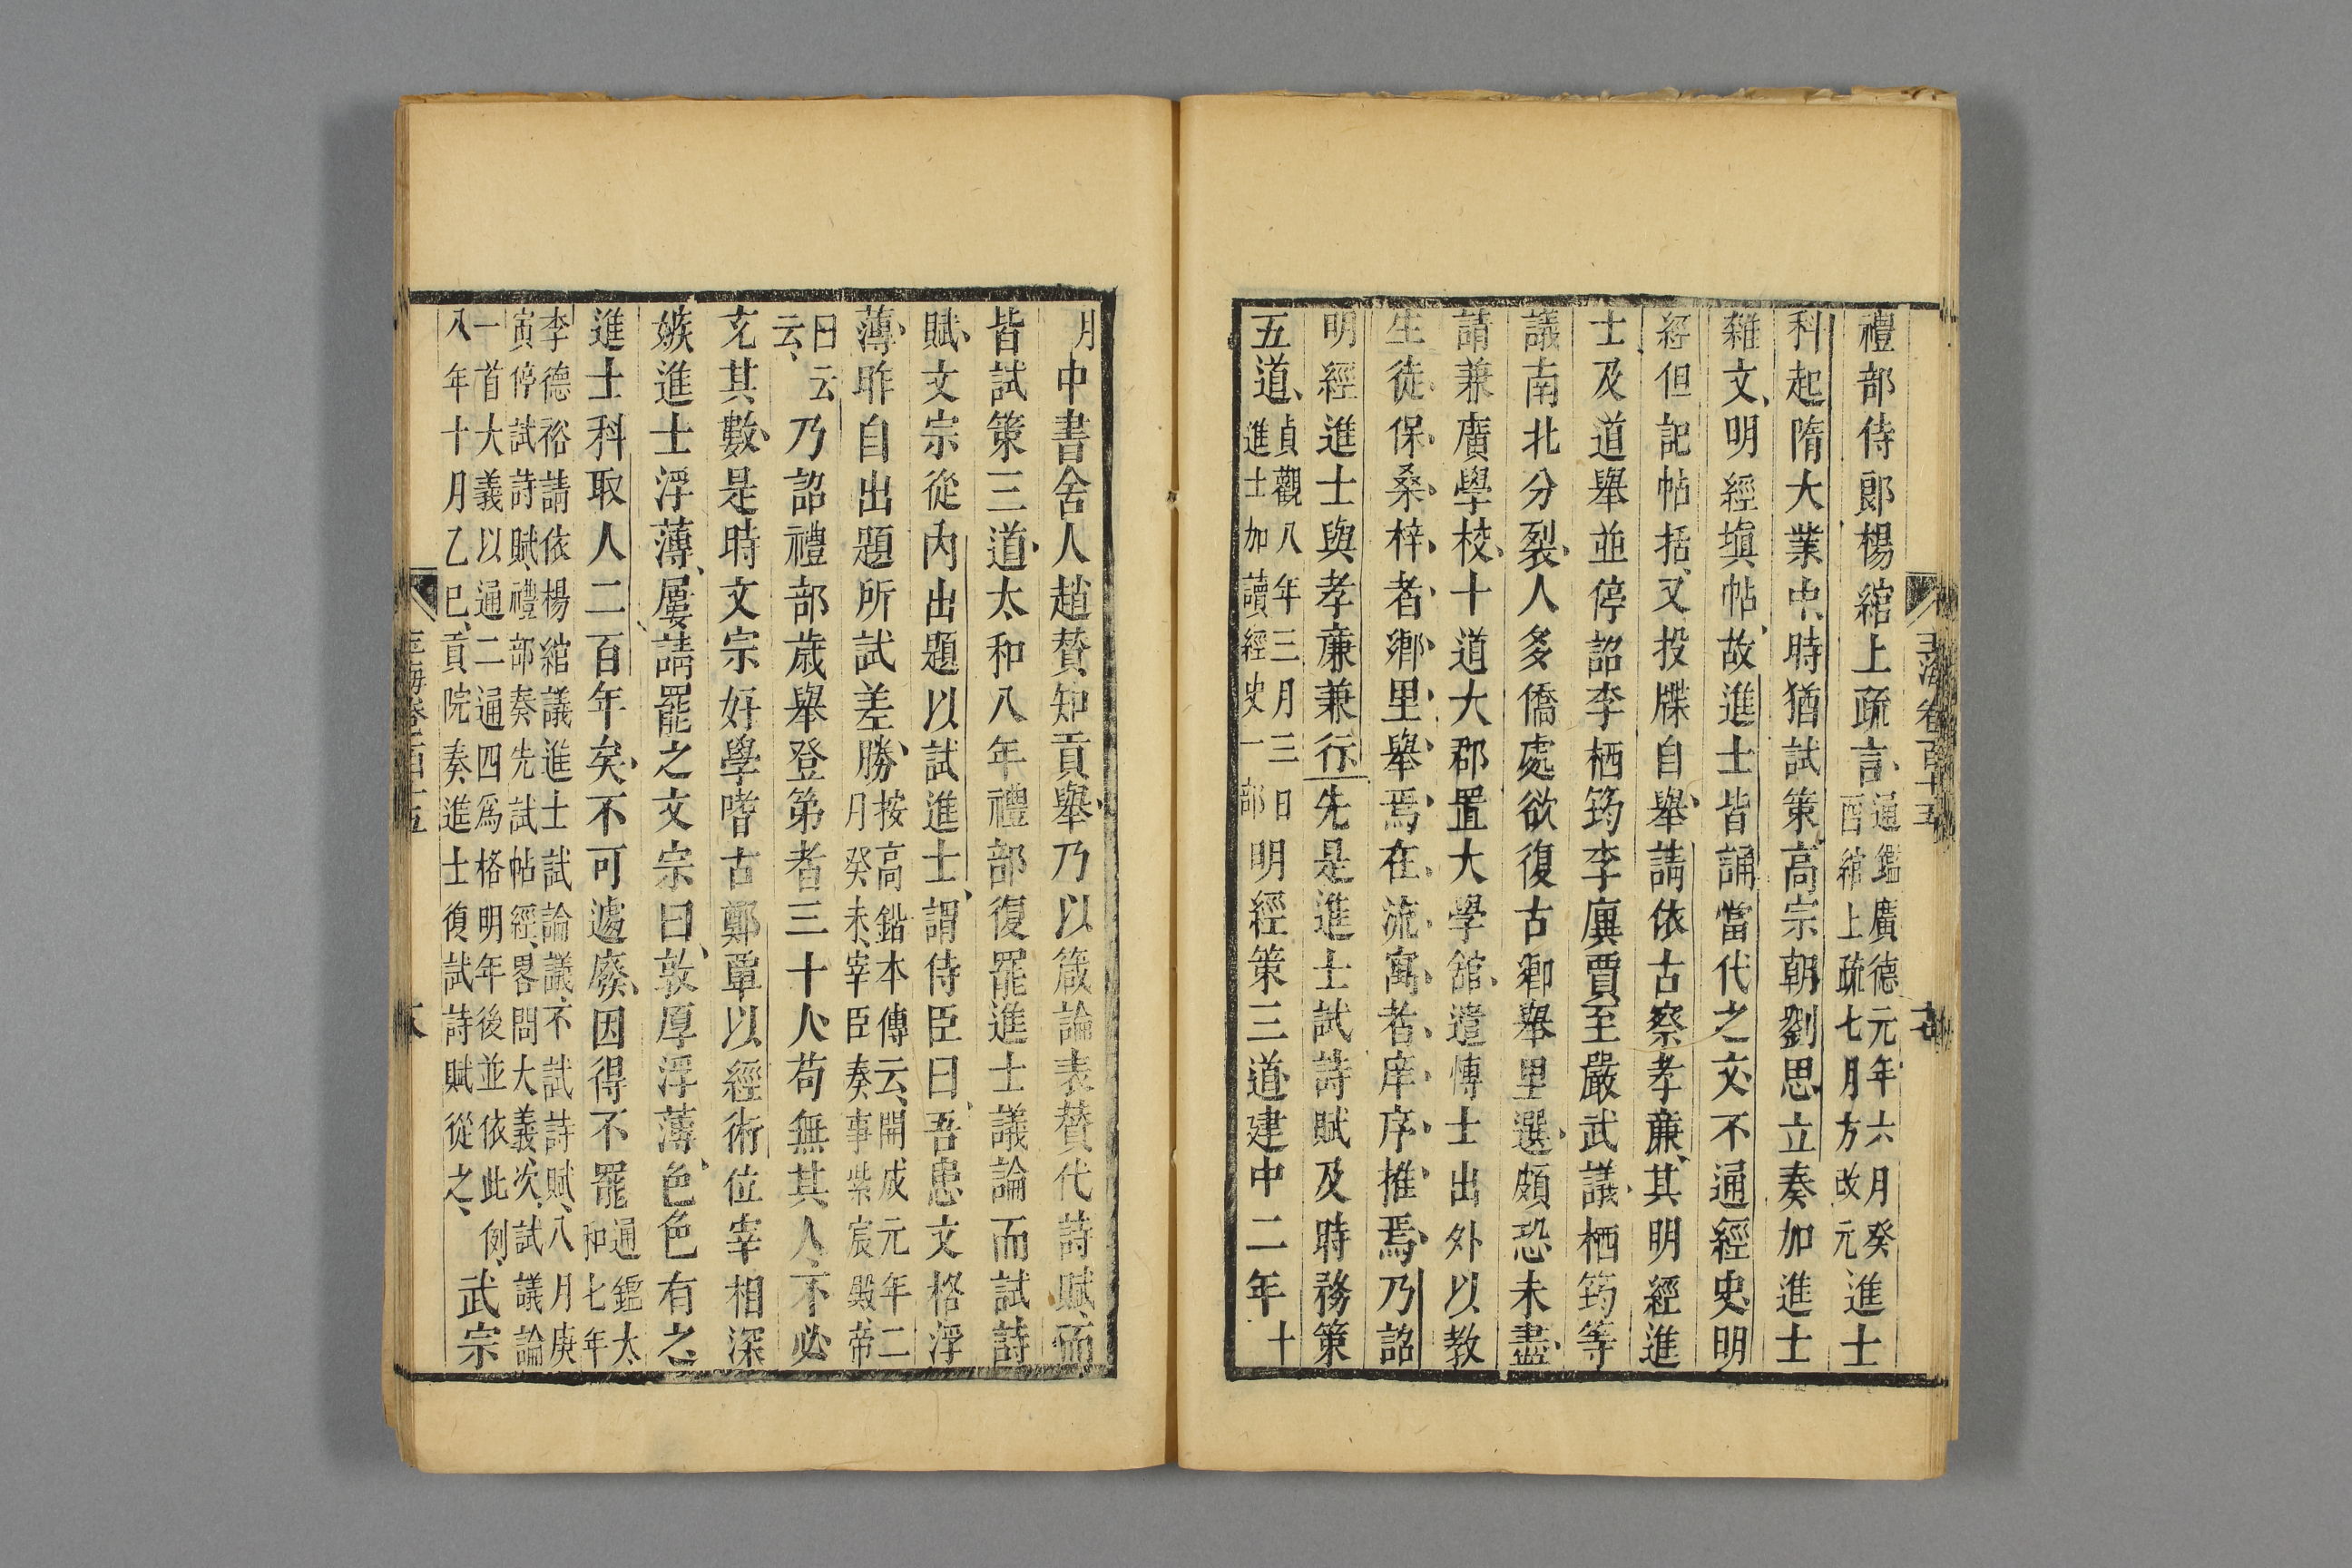 禮部侍郎楊綰上疏言通鑑廣德元年六月癸酉綰上疏七月方改元進士
科起隋大業中時猶試策高宗朝劉思立奏加進士
雜文明經塡帖故進士皆誦當代之文不通經史明
經但記帖括又投牒自舉請依古察孝廉其明經進
士及道舉並停詔李栖筠李廙賈至嚴武議栖筠等
議南北分裂人多僑處欲復古鄉舉里選頗恐未盡
請兼廣學校十道大郡置大學館遣博士出外以教
生徒保桑梓者鄉里舉焉在流寓者庠序推焉乃詔
明經進士與孝廉兼行先是進士試詩賦及時務策
五道貞觀八年三月三日進士加讀經史一部明經策三道建中二年十
玉海卷百十五
月中書舍人趙贊知貢舉乃以箴論表贊代詩賦而
皆試策三道太和八年禮部復罷進士議論而試詩
賦文宗從內出題以試進士謂侍臣曰吾患文格浮
薄昨自出題所試差勝按高鍇本傳云開成元年二月癸未宰臣奏事紫宸殿帝
曰云云乃詔禮部歲舉登第者三十人苟無其人不必
充其數是時文宗好學嗜古鄭覃以經術位宰相深
嫉進士浮薄屢請罷之文宗曰敦厚浮薄色色有之
進士科取人二百年矣不可遽廢因得不罷通鑑太和七年
李德裕請依楊綰議進士試論議不試詩賦八月庚寅停試詩賦禮部奏先試帖經畧問大義次試議論
一首大義以通二通四爲格明年後並依此例八年十月乙巳貢院奏進士復試詩賦從之武宗